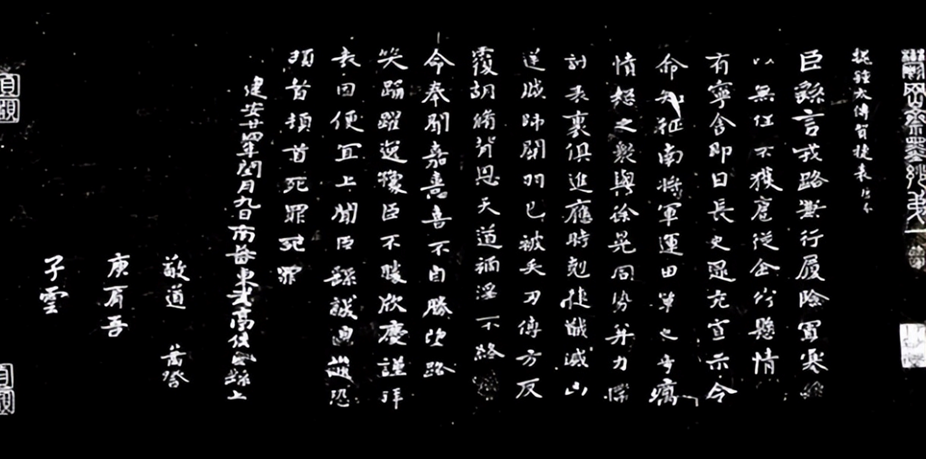 魏鍾太傅賀捷表
臣繇言戎路兼行履險冒寒
以無任不獲扈從企佇懸情
有寧舍即日長史逯充宣示令
命知征南將軍運田單之奇癘
憤怒之衆與徐晃同勢并力撲
討表裏俱進應時剋捷馘滅凶
逆賊帥關羽已被矢刃傅方反
覆胡脩背恩天道禍淫不終
今奉聞嘉憙喜不自勝望路
笑踊躍逸豫臣不勝欣慶謹拜
表因便宜上聞臣繇誠惶誠恐
頓首頓首死罪死罪
建安廿四年閏月九日南蕃東武亭侯臣繇上
敬道
庾肩吾
子雲
貞觀
貞觀